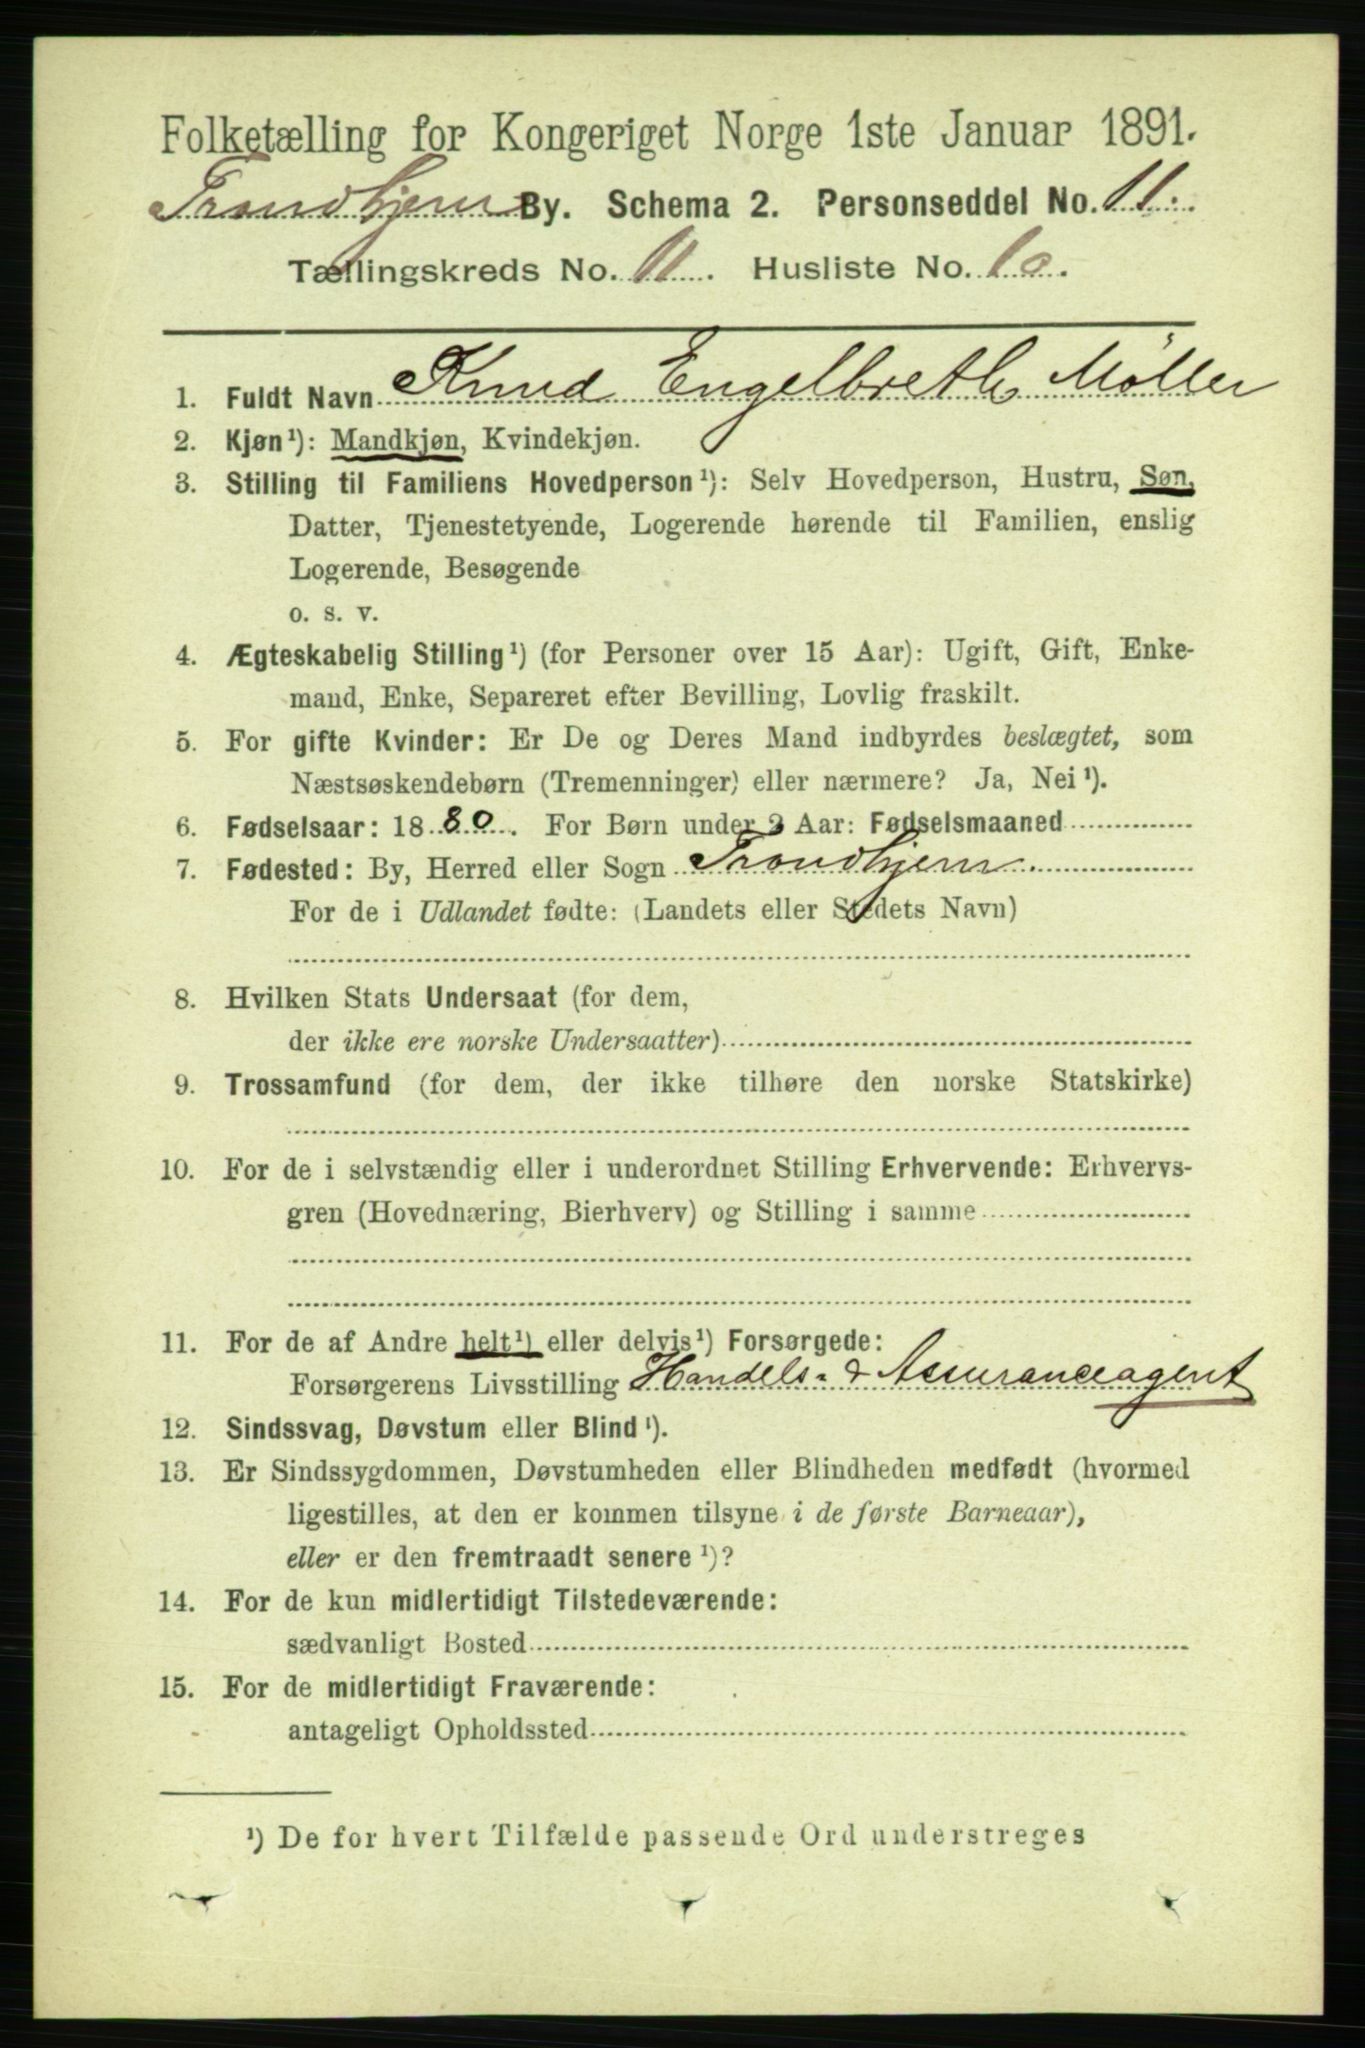 Folketælling for Kongeriget Norge 1ste Januar 1891.
Trondhjem By. Schema 2. Personseddel No. 11.
Tællingskreds No. 11. Husliste No. 10.
1. Fuldt Navn Knud Engelbreth Møller
2. Kjøn¹): Mandkjøn, Kvindekjøn.
3. Stilling til Familiens Hovedperson¹): Selv Hovedperson, Hustru, Søn,
Datter, Tjenestetyende, Logerende hørende til Familien, enslig
Logerende, Besøgende
o. s. v.
4. Ægteskabelig Stilling¹) (for Personer over 15 Aar): Ugift, Gift, Enke-
mand, Enke, Separeret efter Bevilling, Lovlig fraskilt.
5. For gifte Kvinder: Er De og Deres Mand indbyrdes beslægtet, som
Næstsøskendebørn (Tremenninger) eller nærmere? Ja, Nei¹).
6. Fødselsaar: 1880. For Børn under 2 Aar: Fødselsmaaned
7. Fødested: By, Herred eller Sogn Trondhjem
For de i Udlandet fødte: (Landets eller Stedets Navn)
8. Hvilken Stats Undersaat (for dem,
der ikke ere norske Undersaatter)
9. Trossamfund (for dem, der ikke tilhøre den norske Statskirke)
10. For de i selvstændig eller i underordnet Stilling Erhvervende: Erhvervs-
gren (Hovednæring, Bierhverv) og Stilling i samme
11. For de af Andre helt¹) eller delvis¹) Forsørgede:
Forsørgerens Livsstilling Handels- & Assuranceagent
12. Sindssvag, Døvstum eller Blind¹).
13. Er Sindssygdommen, Døvstumheden eller Blindheden medfødt (hvormed
ligestilles, at den er kommen tilsyne i de første Barneaar),
eller er den fremtraadt senere¹)?
14. For de kun midlertidigt Tilstedeværende:
sædvanligt Bosted
15. For de midlertidigt Fraværende:
antageligt Opholdssted
¹) De for hvert Tilfælde passende Ord understreges